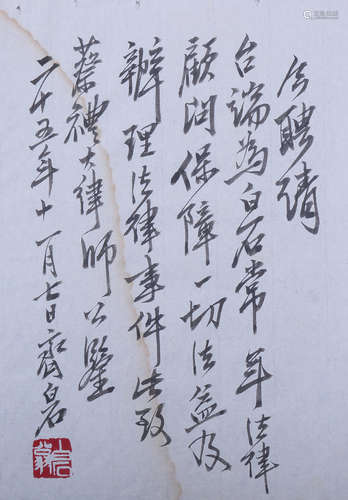 今聘請
台端為白石常年法律
顧問保障一切法益及
辦理法律事件此致
蔡禮大律師公鑒
二十五年十一月七日齊白石